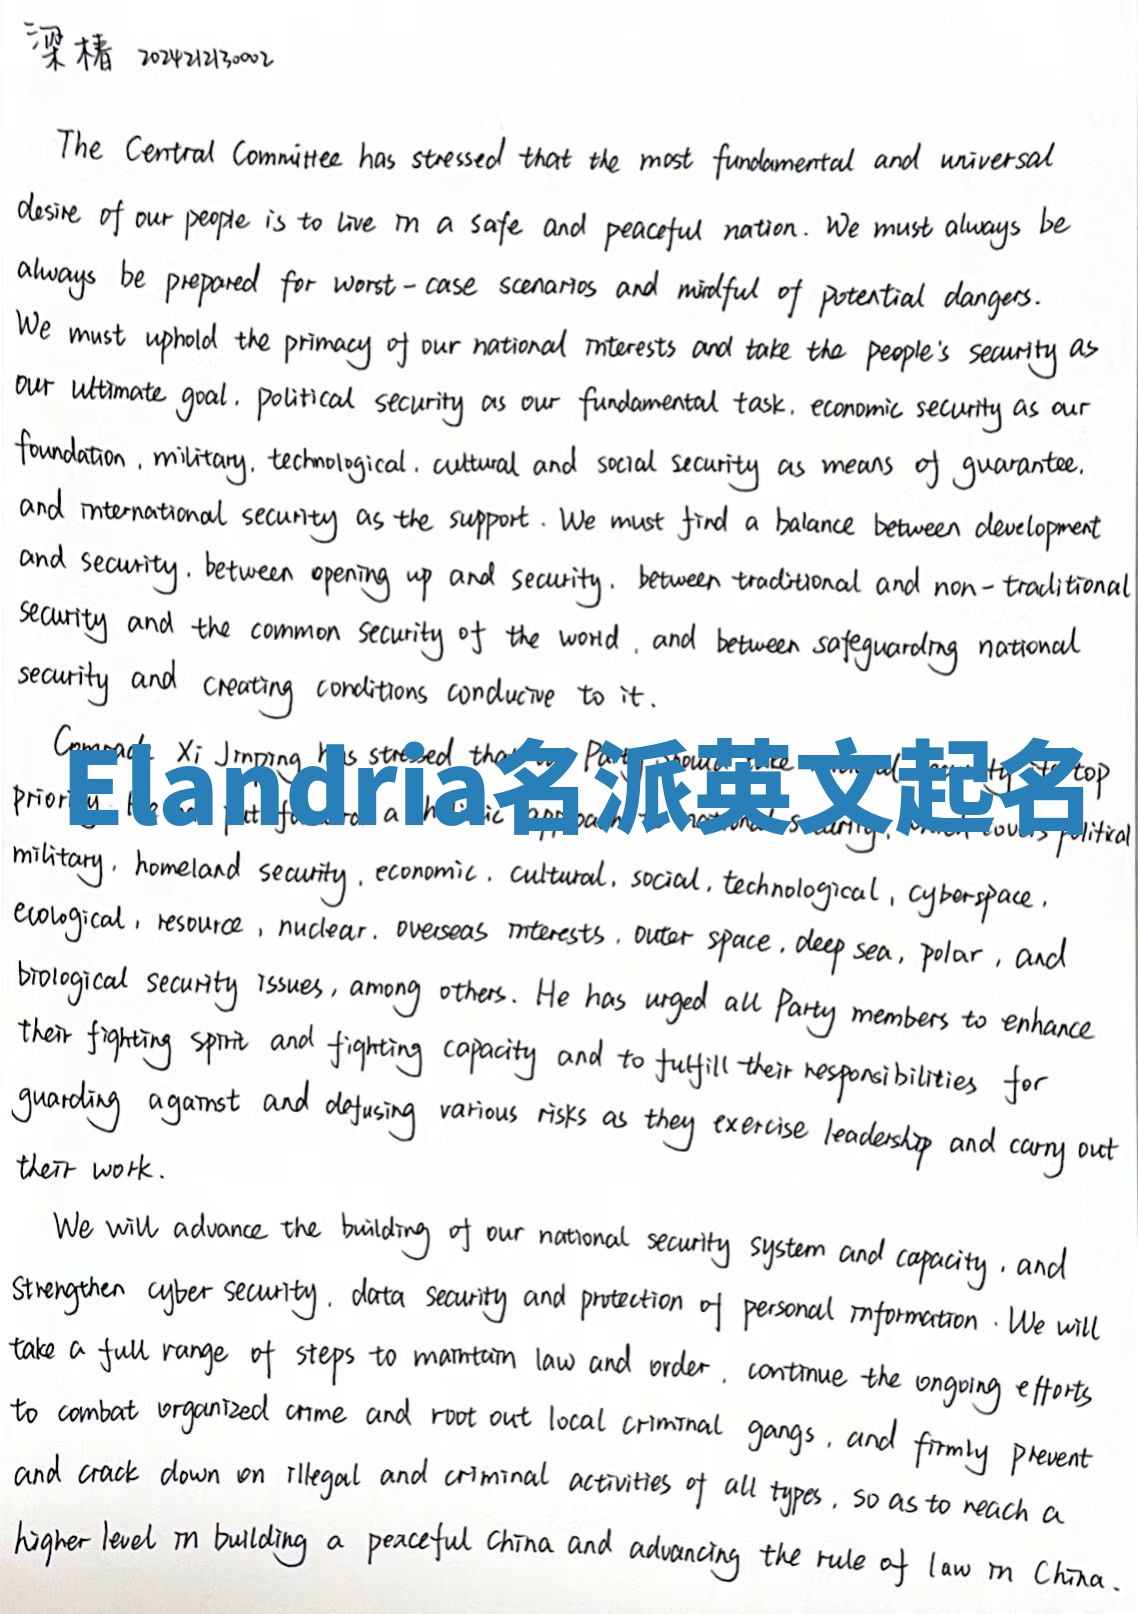 梁椿 2024212130002
The Central Committee has stressed that the most fundamental and universal
desire of our people is to live in a safe and peaceful nation. We must always be
always be prepared for worst-case scenarios and mindful of potential dangers.
We must uphold the primacy of our national interests and take the people's security as
our ultimate goal, political security as our fundamental task, economic security as our
foundation, military, technological, cultural and social security as means of guarantee,
and international security as the support. We must find a balance between development
and security, between opening up and security, between traditional and non-traditional
security and the common security of the world, and between safeguarding national
security and creating conditions conducive to it.
Xi Jinping has stressed
top
Elandria名派英文起名
priority. a political
military, homeland security, economic, cultural, social, technological, cyberspace,
ecological, resource, nuclear, overseas interests, outer space, deep sea, polar, and
biological security issues, among others. He has urged all Party members to enhance
their fighting spirit and fighting capacity and to fulfill their responsibilities for
guarding against and defusing various risks as they exercise leadership and carry out
their work.
We will advance the building of our national security system and capacity, and
strengthen cyber security, data security and protection of personal information. We will
take a full range of steps to maintain law and order, continue the ongoing efforts
to combat organized crime and root out local criminal gangs, and firmly prevent
and crack down on illegal and criminal activities of all types, so as to reach a
higher level in building a peaceful China and advancing the rule of law in China.